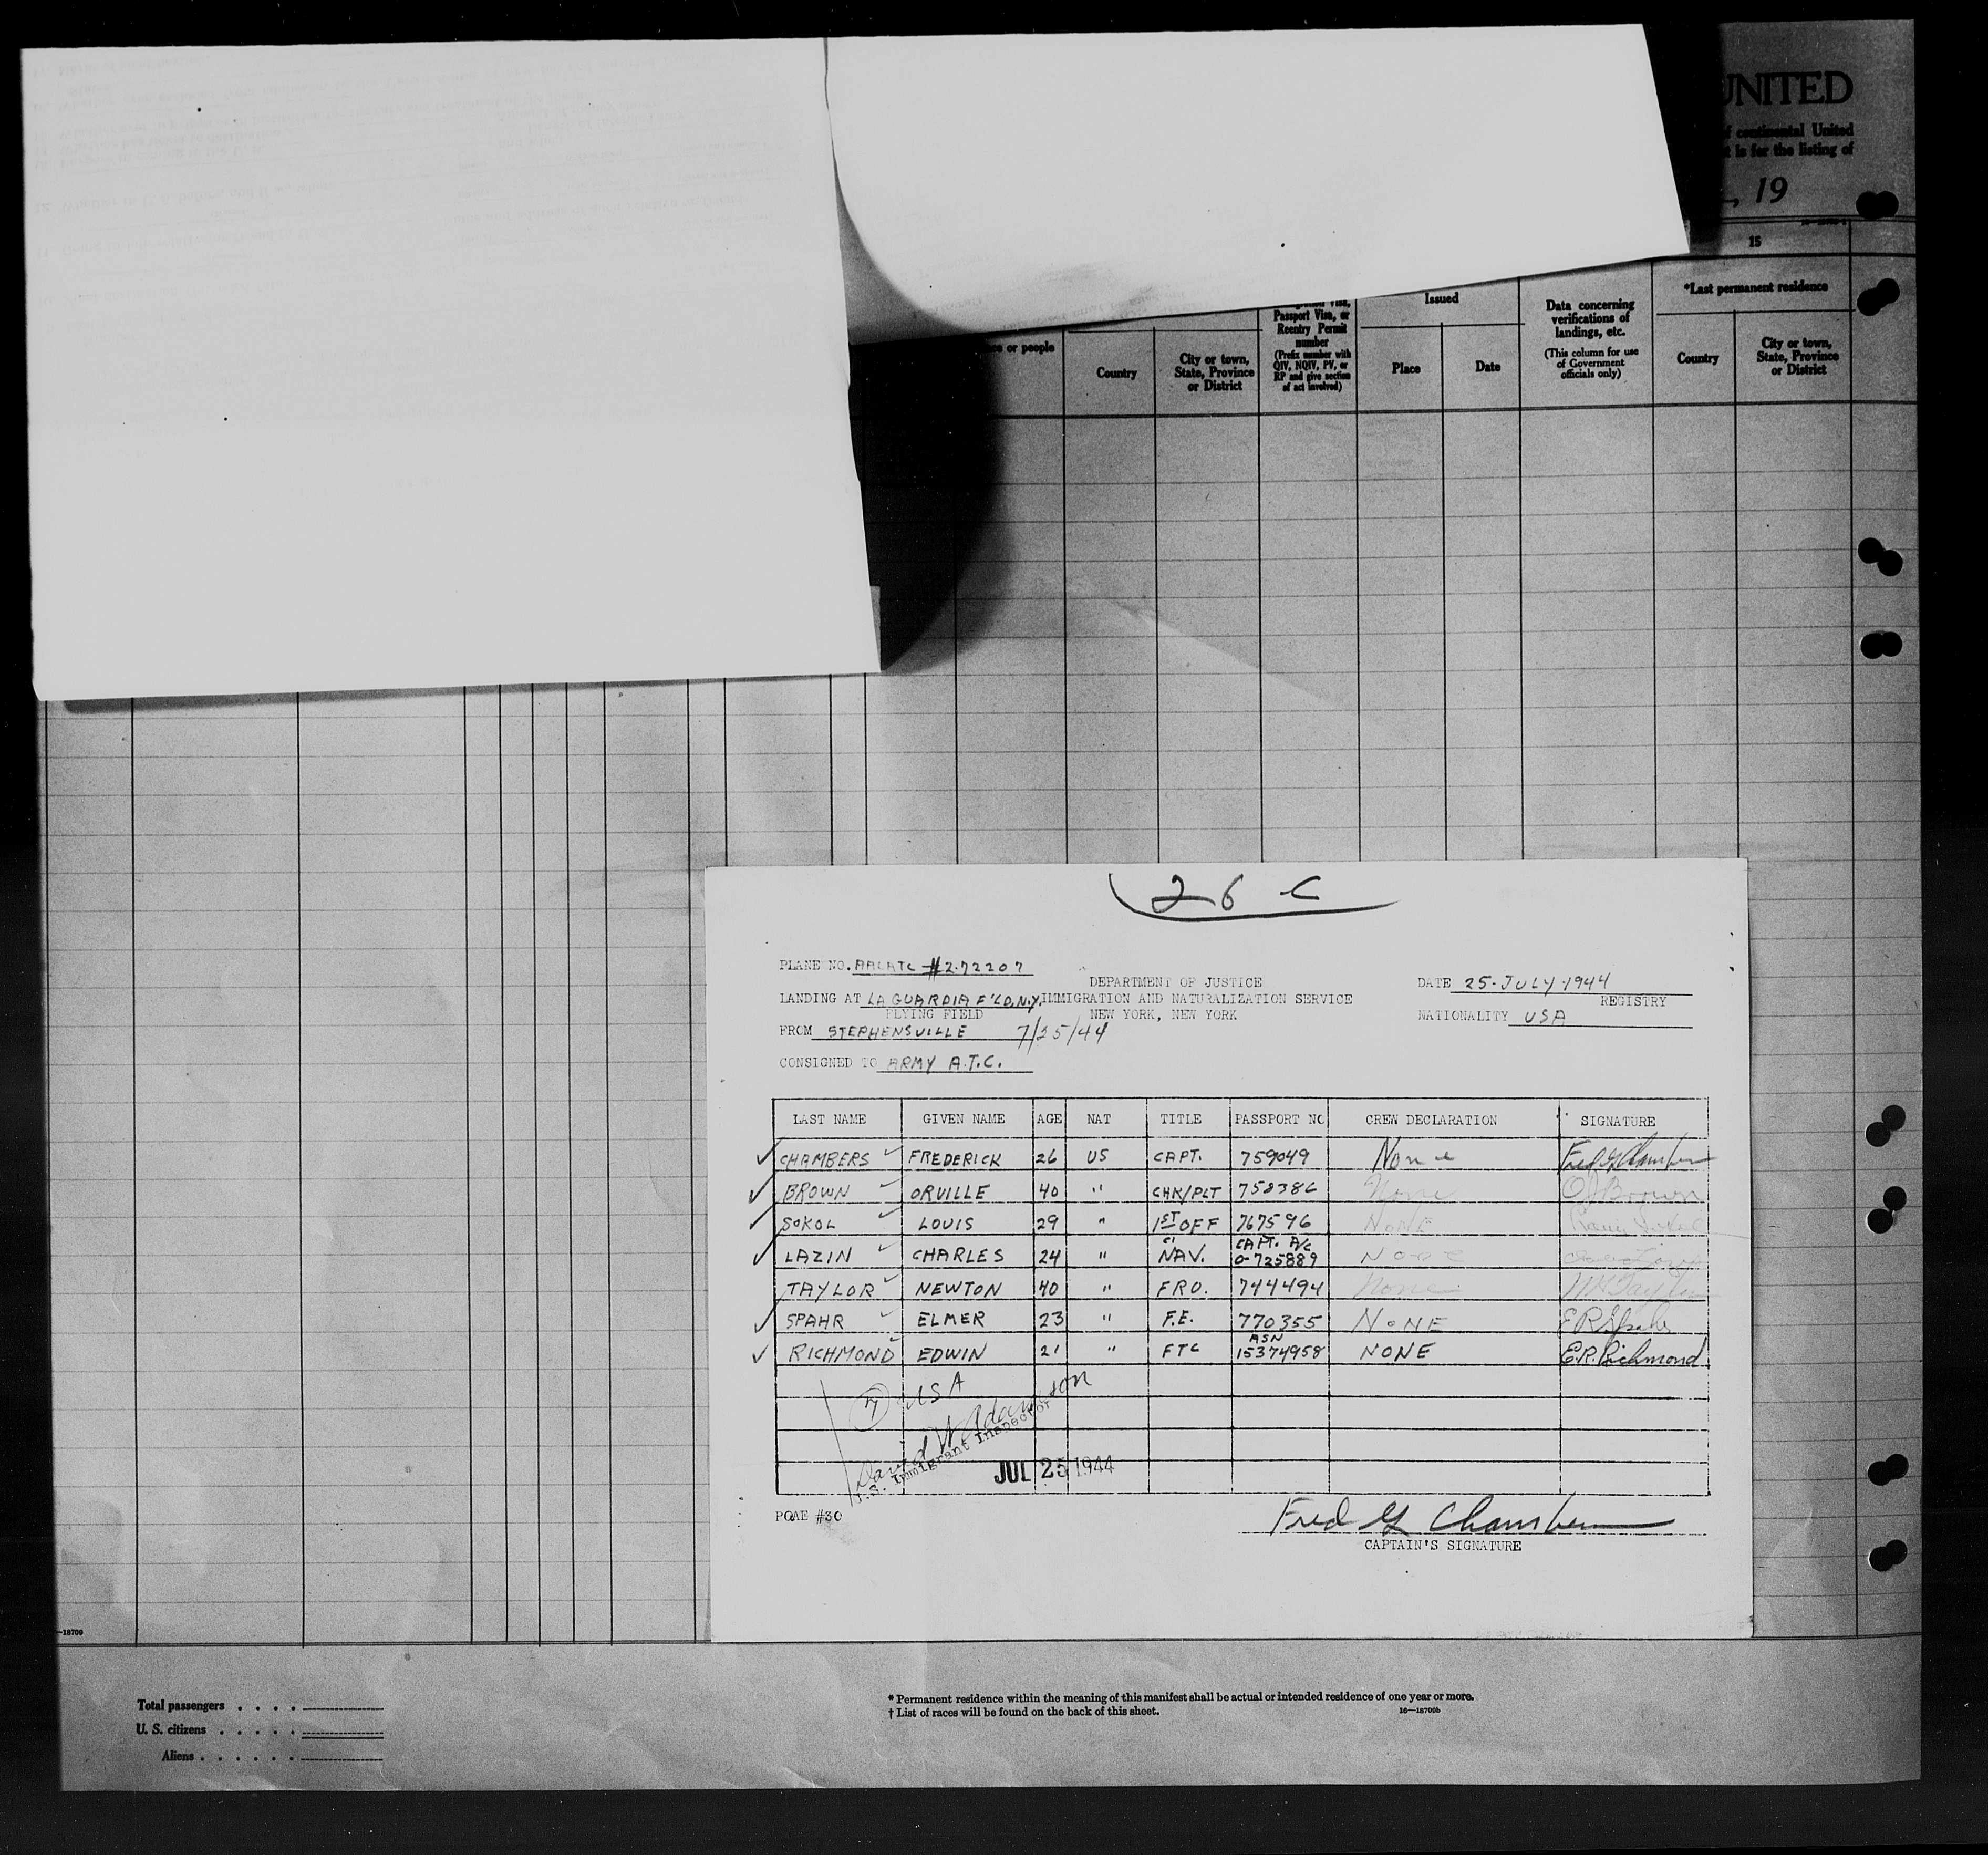 UNITED
of continental United
t is for the listing of
, 19
15
Issued
*Last permanent residence
Passport Visa, or
Reentry Permit
number
(Prefix number with
QIV, NQIV, PV, or
RP and give section
of act involved)
Data concerning
verifications of
landings, etc.
(This column for use
of Government
officials only)
or people
Country
City or town,
State, Province
or District
Place
Date
Country
City or town,
State, Province
or District
26 C
PLANE NO. AALATC #2-72207
DEPARTMENT OF JUSTICE
DATE 25-JULY-1944
LANDING AT LA GUARDIA F'LD, N.Y. IMMIGRATION AND NATURALIZATION SERVICE
REGISTRY
FLYING FIELD
NEW YORK, NEW YORK
NATIONALITY USA
FROM STEPHENSVILLE 7/25/44
CONSIGNED TO ARMY A.T.C.
LAST NAME GIVEN NAME AGE NAT TITLE PASSPORT NO CREW DECLARATION SIGNATURE
CHAMBERS FREDERICK 26 US CAPT. 759049 None Fred G Chambers
BROWN ORVILLE 40 " CHK/PLT 758386 None O J Brown
SOKOL LOUIS 29 " 1ST OFF 767596 NONE Louis Sokol
LAZIN CHARLES 24 " NAV. CAPT. A/C O-725889 NONE
TAYLOR NEWTON 40 " FRO. 744494 None
SPAHR ELMER 23 " F.E. 770355 NONE E R Spahr
RICHMOND EDWIN 21 " FTC ASN 15374958 NONE E.R. Richmond
7 USA
David W Adamson
U.S. Immigrant Inspector
JUL 25 1944
POAE #30
Fred G Chambers
CAPTAIN'S SIGNATURE
—18709
Total passengers . . . .
U. S. citizens . . . . .
Aliens . . . . . .
* Permanent residence within the meaning of this manifest shall be actual or intended residence of one year or more.
† List of races will be found on the back of this sheet.
16—18709b